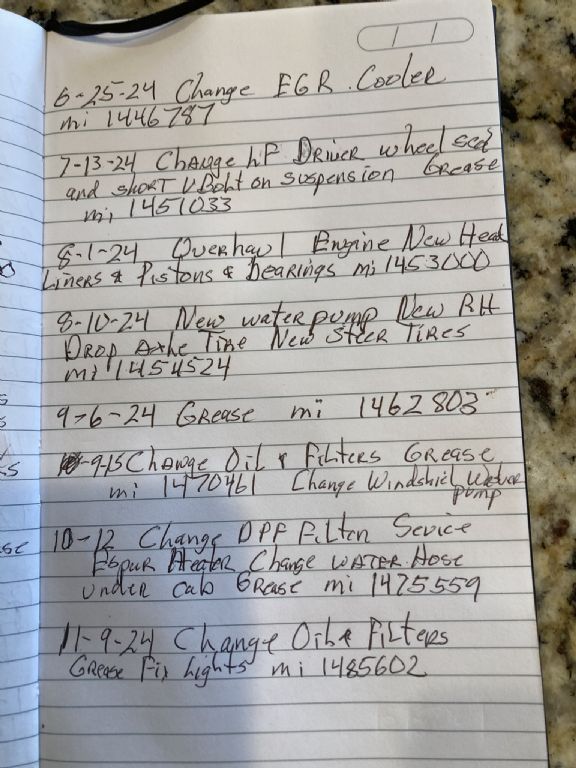 6-25-24 Change EGR. Cooler
mi 1446787
7-13-24 Change LF Driver wheel seal
and short UBolt on suspension Grease
mi, 1451033
8-1-24 Overhaul Engine New Head
Liners & Pistons & bearings mi 1453000
8-10-24 New water pump New RH
Drop Axle Tire New Steer Tires
mi 1454524
9-6-24 Grease mi 1462803
9-15 Change Oil & Filters Grease
mi 1470461 Change Windshiel Washer
pump
10-12 Change DPF Filter Sevice
Espar Heater Change water Hose
under cab Grease mi 1475559
11-9-24 Change Oil & Filters
Grease Fix Lights mi 1485602